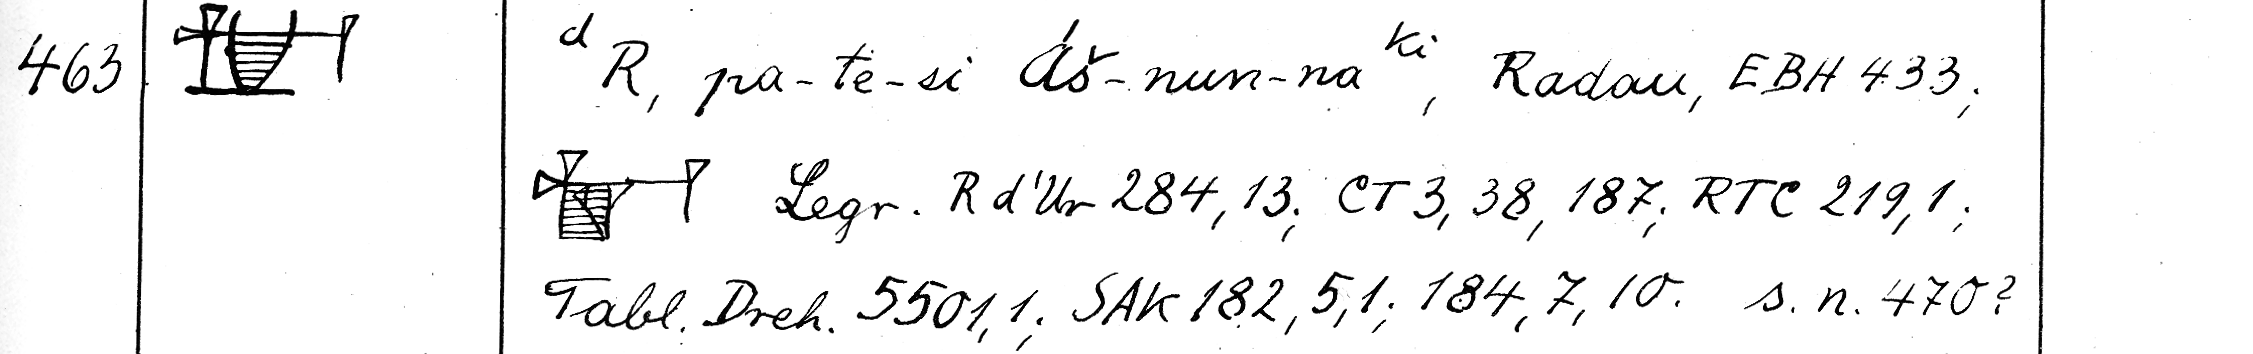 463 ᵈ R, pa-te-si Áš-nun-na ᵏⁱ, Radau, EBH 433;
Legr. R d'Ur 284,13; CT 3, 38, 187; RTC 219,1;
Tabl. Dreh. 5501,1; SAK 182,5,1; 184,7,10. s. n. 470?